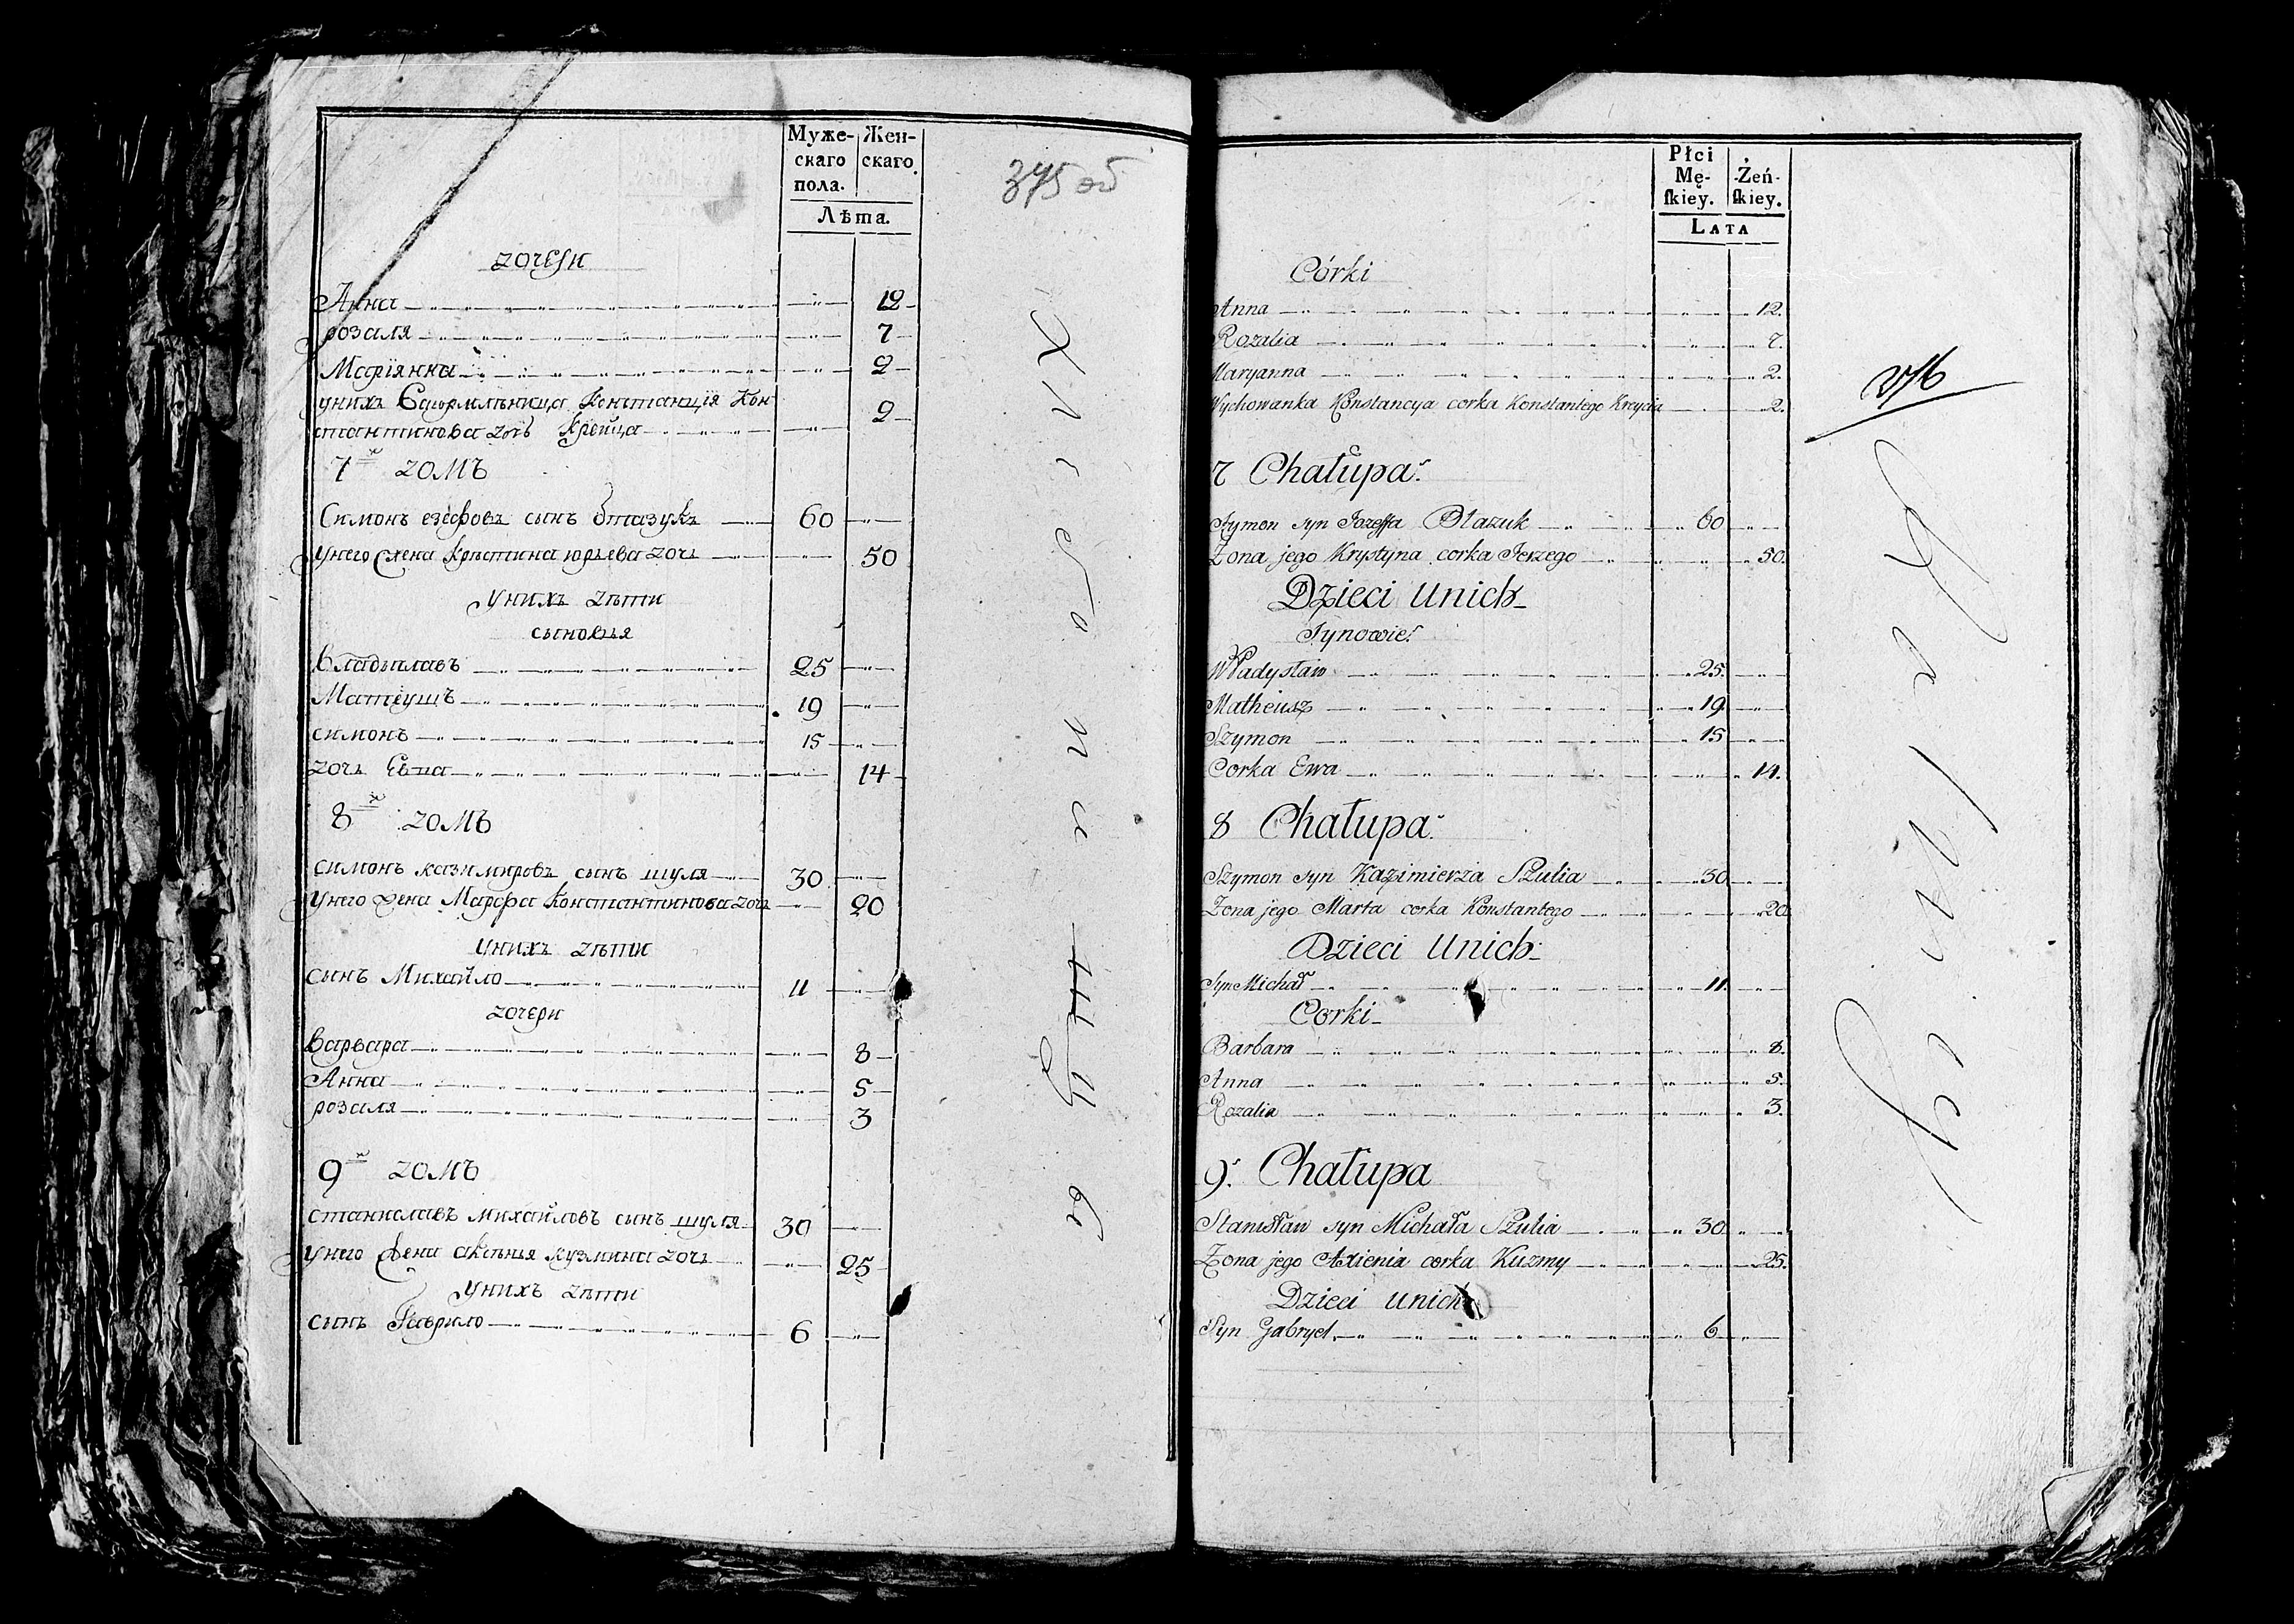 Муже-
скаго
пола.
Жен-
скаго.
Лѣта.
375 об
дочери
Анна 12
розаля 7
Маріянна 2
унихъ Констанція Кон
стантинова дочь Крейца 2
7 домъ
Симонъ езефовъ сынъ 60
унего жена Крыстина юрьева дочь 50
унихъ дѣти
сыновья
Владыславъ 25
Матеушъ 19
симонъ 15
дочь Евва 14
8 домъ
симонъ казимировъ сынъ шуля 30
унего жена Марфа Константинова дочь 20
унихъ дѣти
сынъ Михайло 11
дочери
Варвара 8
Анна 5
розаля 3
9 домъ
станиславъ михайловъ сынъ шуля 30
унего жена аксенья кузмина дочь 25
унихъ дѣти
сынъ Гаврило 6
Płci
Mę-
skiey.
Żeń-
skiey.
Lata
Córki
Anna 12.
Rozalia 7.
Maryanna 2.
Wychowanka Konstancya corka Konstantego Kreyca 2.
7 Chałupa
Szymon syn Jozeffa 60
Zona jego Krystyna corka Jerzego 50.
Dzieci Unich
Synowie
Władysław 25.
Matheusz 19
Szymon 15
Corka Ewa 14.
8 Chałupa
Szymon syn Kazimierza Szulia 30
Zona jego Marta corka Konstantego 20
Dzieci Unich
Syn Michał 11.
Corki
Barbara 8.
Anna 5.
Rozalia 3.
9. Chałupa
Stanisław syn Michała Szulia 30
Zona jego Axienia corka Kuzmy 25.
Dzieci unich
Syn Gabryel 6